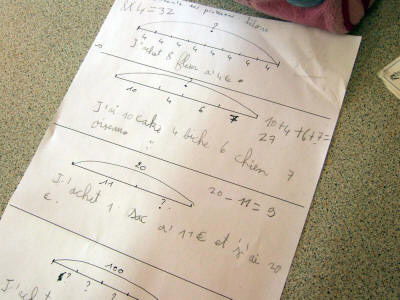 des problèmes
x 4 = 32
?
4 4 4 4 4 4 4 4
J'achet 8 fleur a 4€
?
10 4 6 7
10+4+6+7=
27
J'ai 10 4 biche 6 chien 7
oiseau
20
11 ?
20 - 11 = 9
J'achet 1 sac a 11€ et j'ai 20
€.
100
? ? ?
J'achet